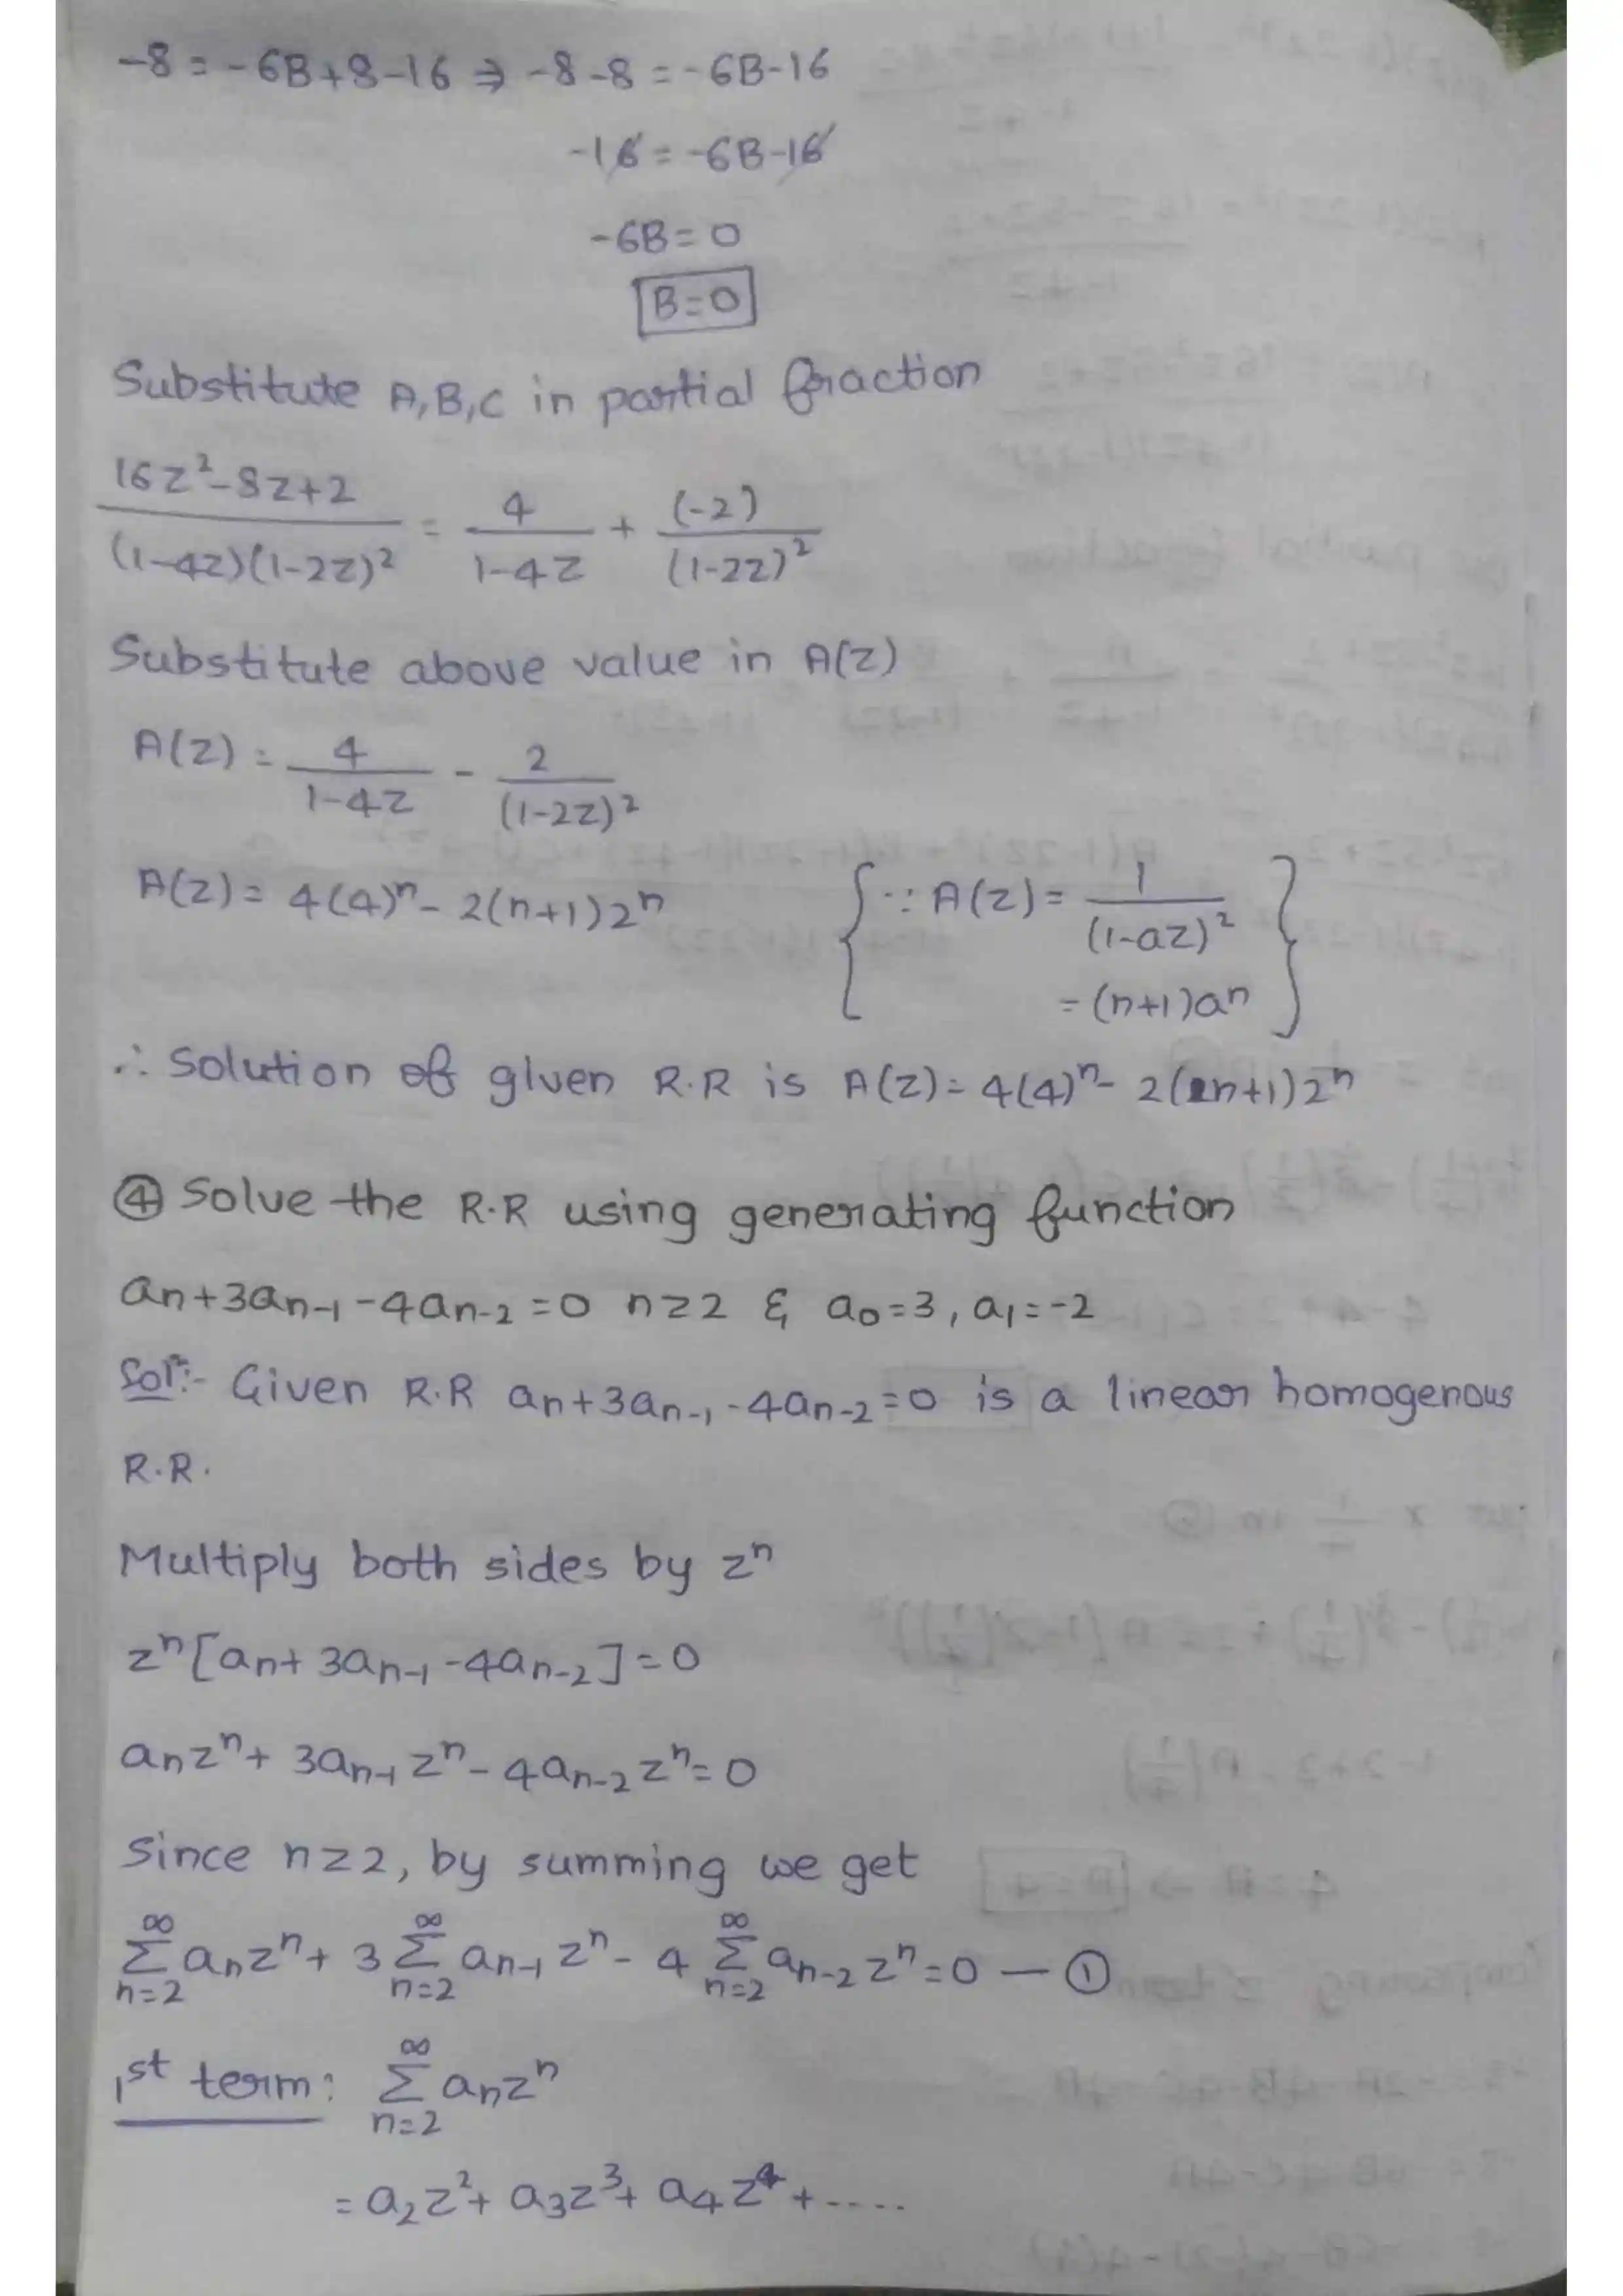 -8 = -6B+8-16 ⇒ -8-8 = -6B-16
-16 = -6B-16
-6B = 0
B=0
Substitute A,B,C in partial fraction
16z²-8z+2 / (1-4z)(1-2z)² = 4 / 1-4z + (-2) / (1-2z)²
Substitute above value in A(z)
A(z) = 4 / 1-4z - 2 / (1-2z)²
A(z) = 4(4)ⁿ - 2(n+1)2ⁿ { ∵ A(z) = 1 / (1-az)²
= (n+1)aⁿ }
∴ Solution of given R.R is A(z) = 4(4)ⁿ - 2(2n+1)2ⁿ
④ Solve the R.R using generating function
aₙ+3aₙ₋₁-4aₙ₋₂=0 n≥2 & a₀=3, a₁=-2
Solⁿ:- Given R.R aₙ+3aₙ₋₁-4aₙ₋₂=0 is a linear homogenous
R.R.
Multiply both sides by zⁿ
zⁿ[aₙ+3aₙ₋₁-4aₙ₋₂]=0
aₙzⁿ+3aₙ₋₁zⁿ-4aₙ₋₂zⁿ=0
Since n≥2, by summing we get
∞Σn=2 aₙzⁿ + 3 ∞Σn=2 aₙ₋₁zⁿ - 4 ∞Σn=2 aₙ₋₂zⁿ = 0 — ①
1st term: ∞Σn=2 aₙzⁿ
= a₂z²+a₃z³+a₄z⁴+.....